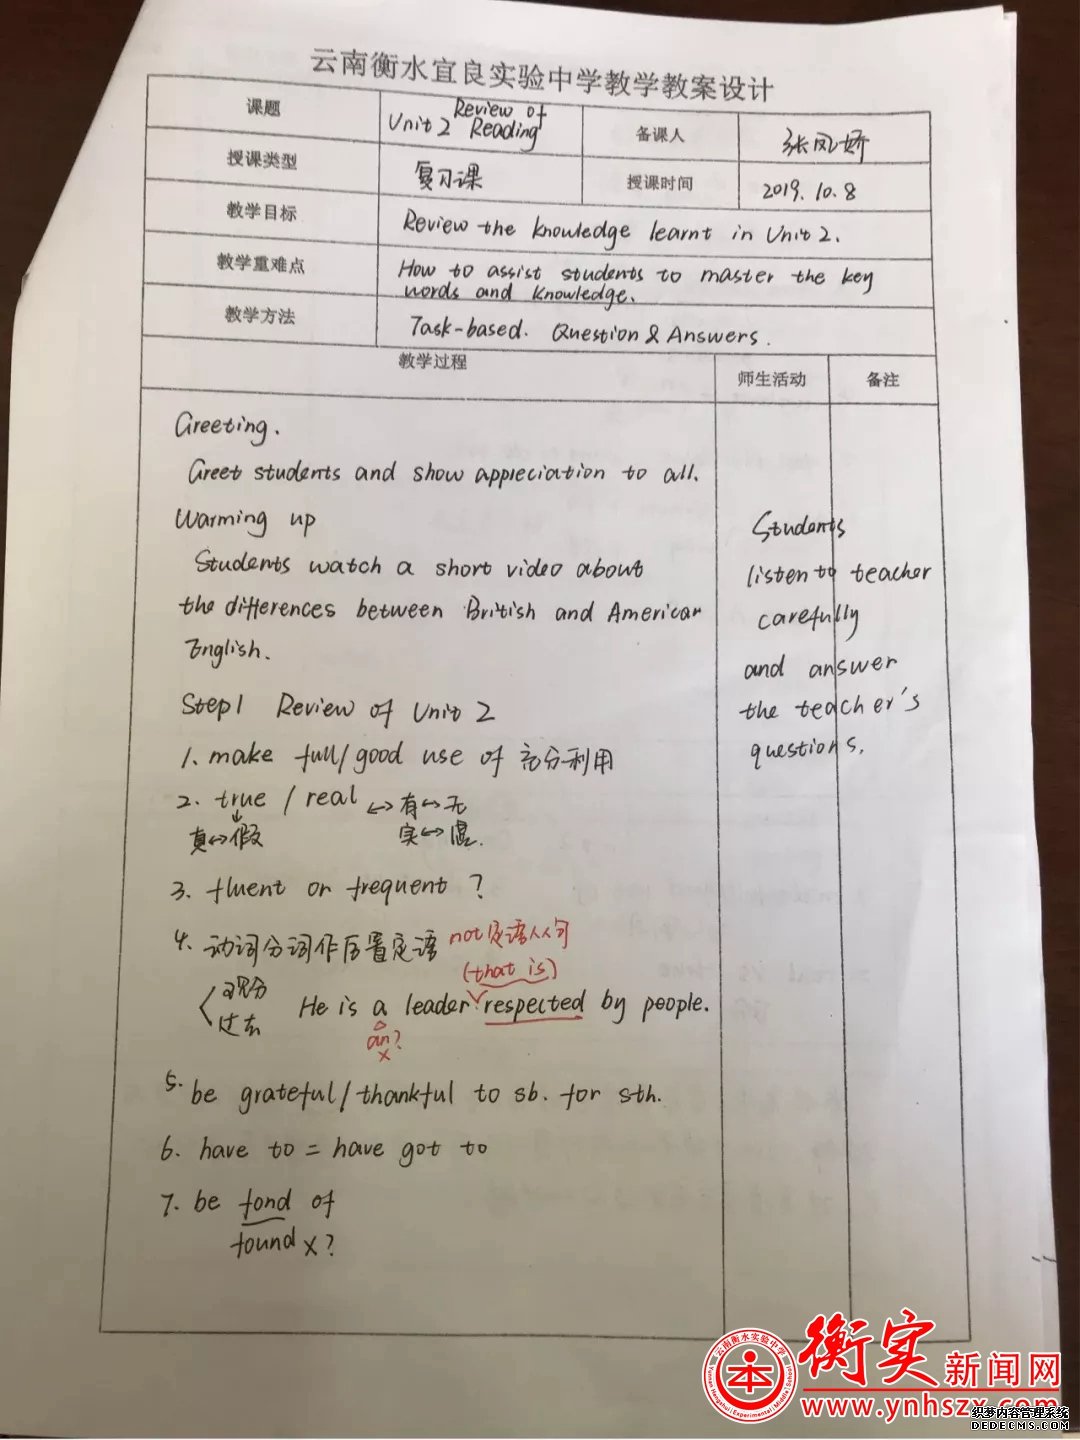 云南衡水宜良实验中学教学教案设计
课题
Review of
Unit 2 Reading
备课人
张凤娇
授课类型
复习课
授课时间
2019.10.8
教学目标
Review the knowledge learnt in Unit 2.
教学重难点
How to assist students to master the key
words and knowledge.
教学方法
Task-based. Question & Answers.
教学过程
师生活动
备注
Greeting.
Greet students and show appreciation to all.
Warming up
Students watch a short video about
the differences between British and American
English.
Step1 Review of Unit 2
1. make full/good use of 充分利用
2. true / real ↔ 有↔无
真↔假 实↔虚.
3. fluent or frequent ?
4. 动词分词作后置定语 not 定语从句
(that is)
现分
过去
He is a leader respected by people.
an?
×
5. be grateful/thankful to sb. for sth.
6. have to = have got to
7. be fond of
found ×?
Students
listen to teacher
carefully
and answer
the teacher's
questions.
云南衡水实验中学
本
Yunnan Hengshui Experimental Middle School
衡实新闻网
www.ynhszx.com
织梦内容管理系统
DEDECMS.COM